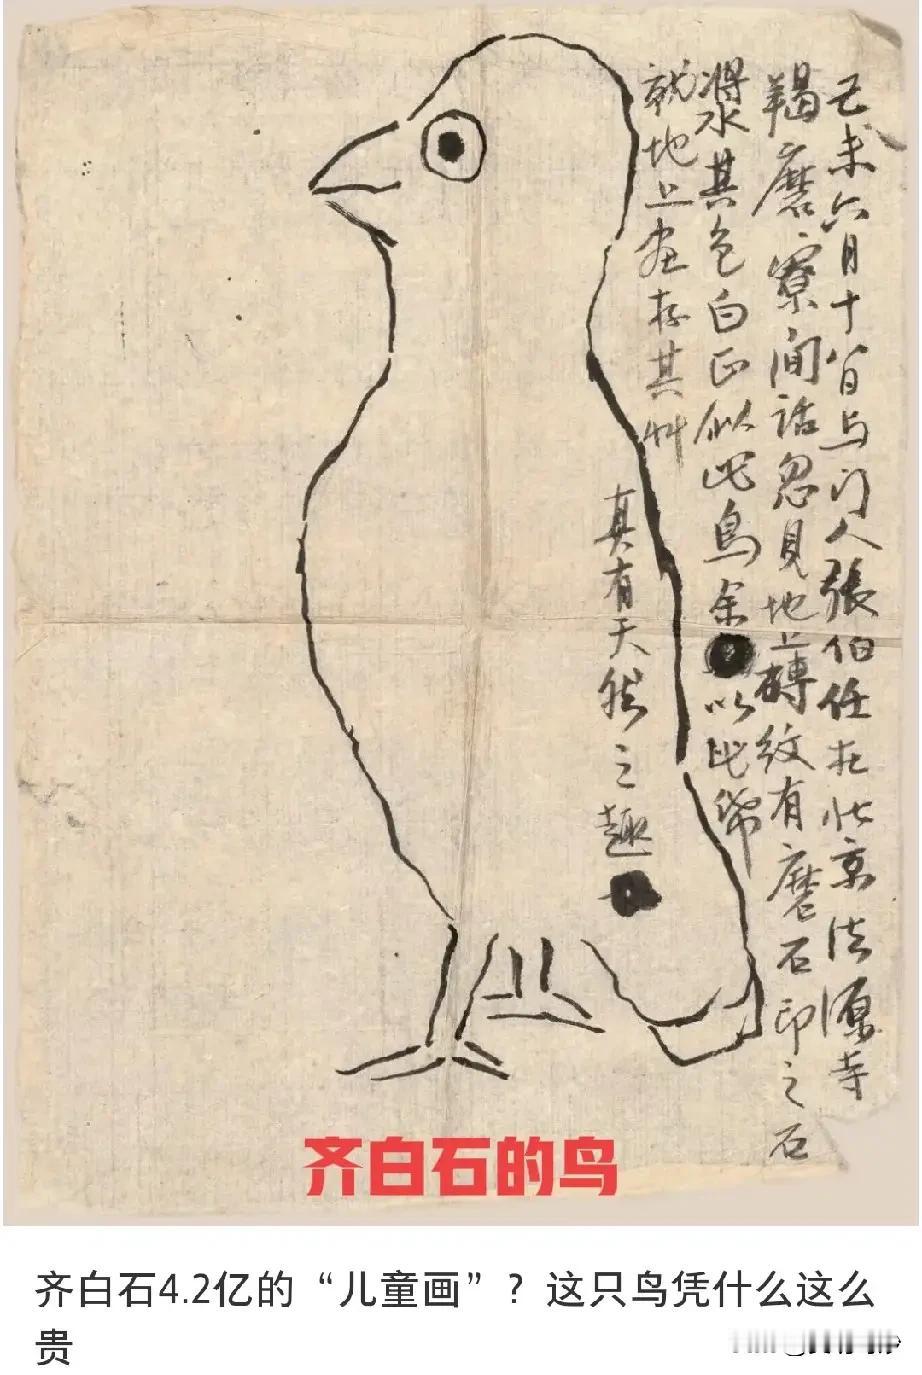 己未六月十八日与门人張伯任在北京法源寺
羯磨寮间话忽見地上磚紋有磨石印之石
漿水其色白正似此鳥余以此紙
就地上画存其艸
真有天然之趣
齐白石的鸟
齐白石4.2亿的“儿童画”？这只鸟凭什么这么
贵